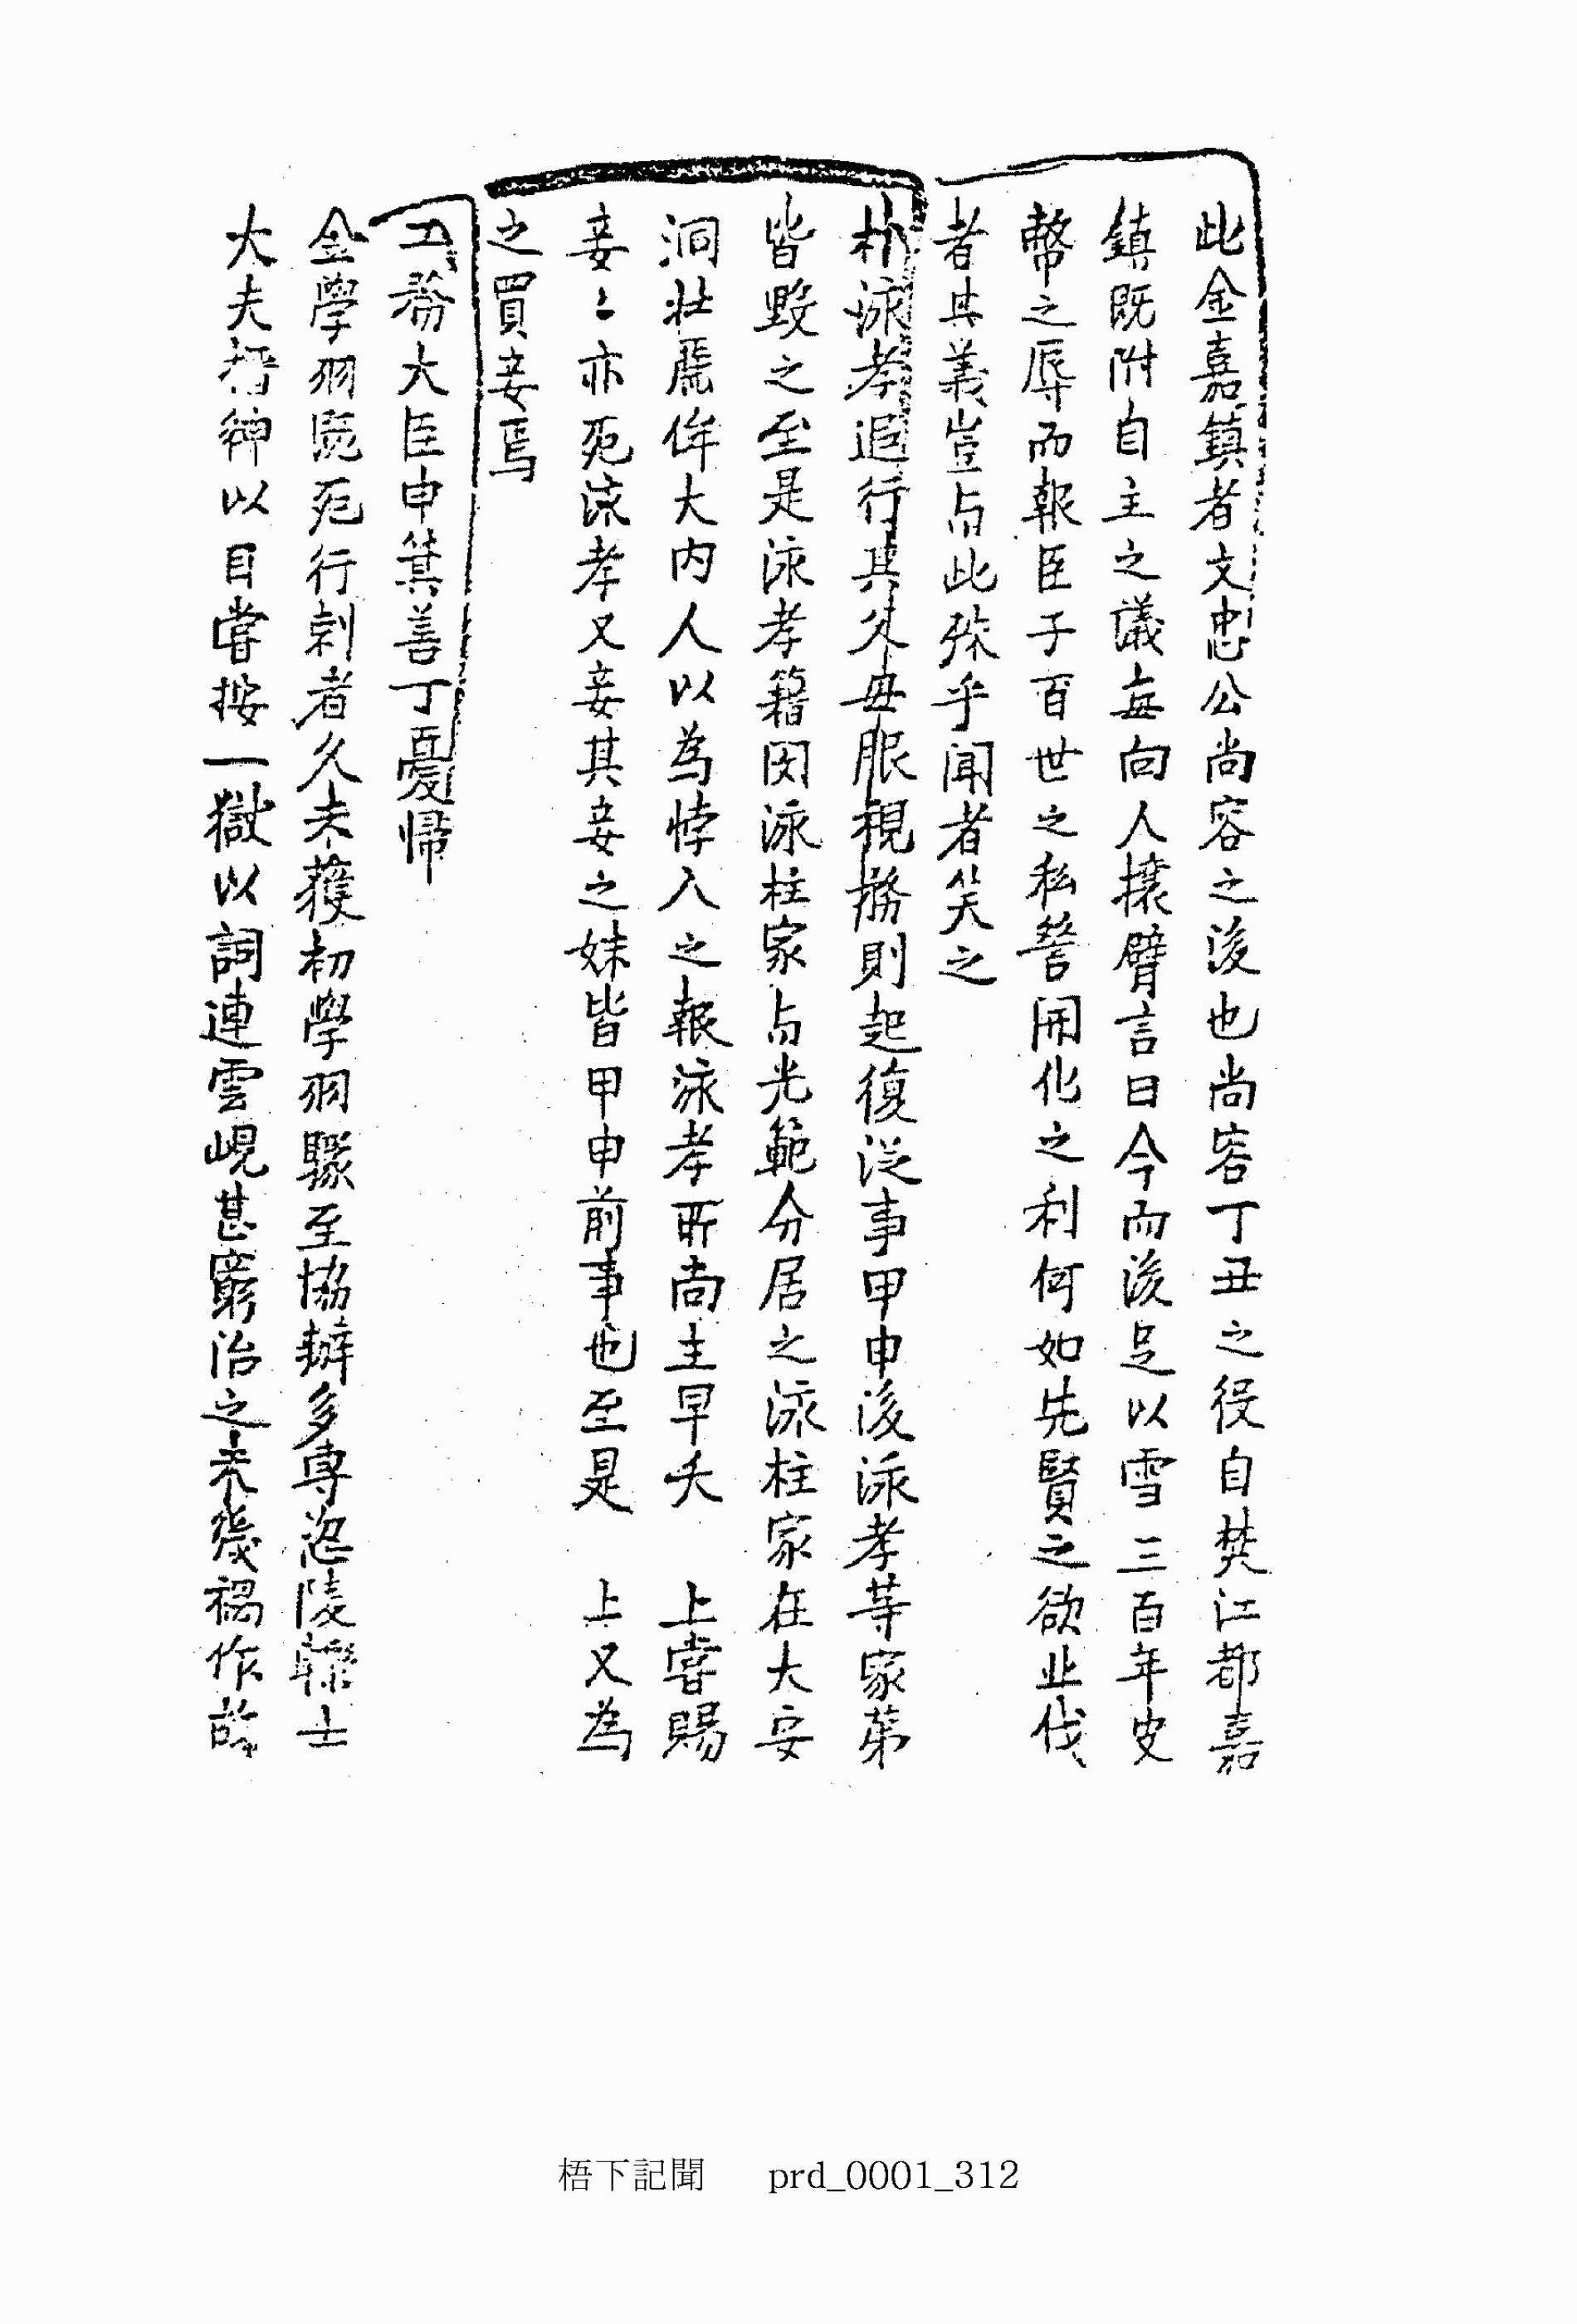 此金嘉鎮者文忠公尚容之後也尚容丁丑之役自焚江都嘉
鎮既附自主之議每向人攘臂言曰今而後足以雪三百年皮
幣之辱而報臣子百世之私讐開化之利何如先賢之欲止伐
者其義豈与此殊乎聞者笑之
朴泳孝追行其父母服視務則起復從事甲申後泳孝等家第
皆毀之至是泳孝籍閔泳柱家与光範分居之泳柱家在大安
洞壯麗侔大内人以為悖入之報泳孝所尚主早夭 上嘗賜
妾〻亦死泳孝又妾其妾之妹皆甲申前事也至是 上又為
之買妾焉
工務大臣申箕善丁憂帰
金學羽既死行刺者久未獲初學羽驟至協辦多專恣陵轢士
大夫搢紳以目嘗按一獄以詞連雲峴甚窮治之未幾禍作故